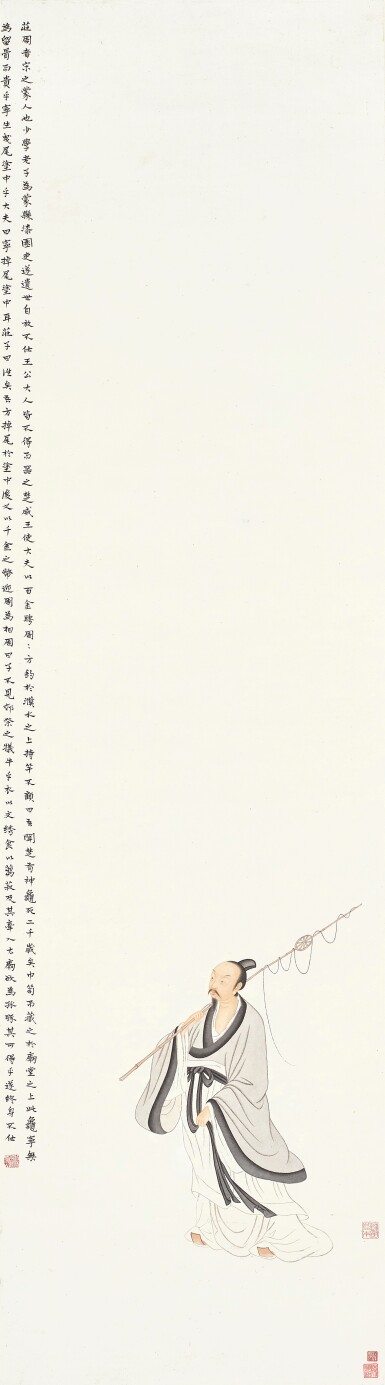 莊周者宗之蒙人也少學老子為蒙縣漆園吏遂遺世自放不仕王公大人皆不得而器之楚威王使大夫以百金聘周：方釣於濮水之上持竿不顧曰吾聞楚有神龜死二千歲矣巾笥而藏之於廟堂之上此龜寧無
為留骨而貴乎寧生曳尾塗中乎大夫曰寧掉尾塗中耳莊子曰往矣吾方掉尾於塗中後又以千金之幣迎周為相周曰子不見郊祭之犧牛乎衣以文繡食以芻菽及其牽入太廟欲為孤豚其可得乎遂終身不仕